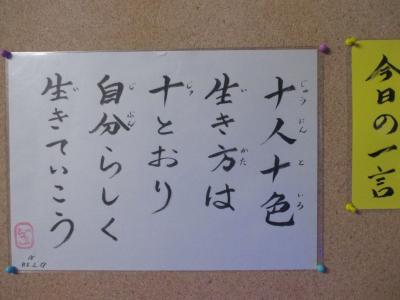 今日の一言
十人十色
生き方は
十とおり
自分らしく
生きていこう